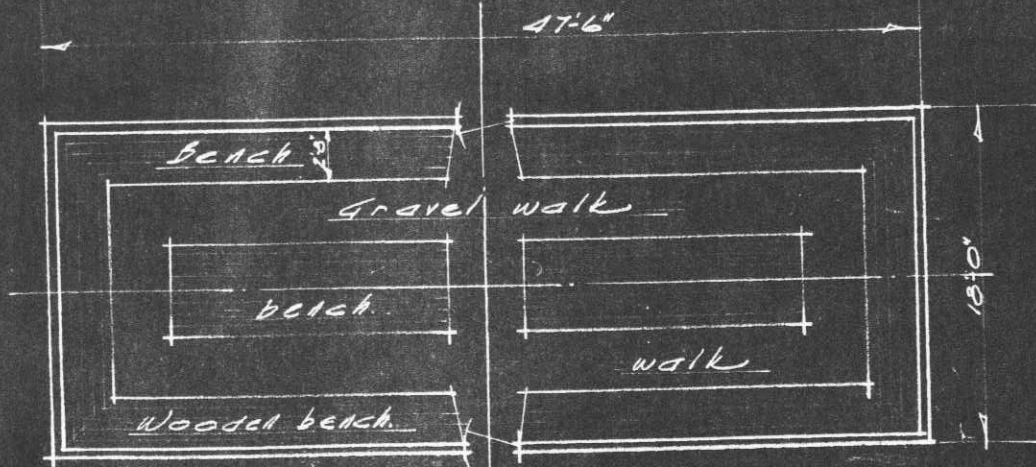 47'-6"
Bench
Gravel walk
18'-0"
bench.
walk
Wooden bench.